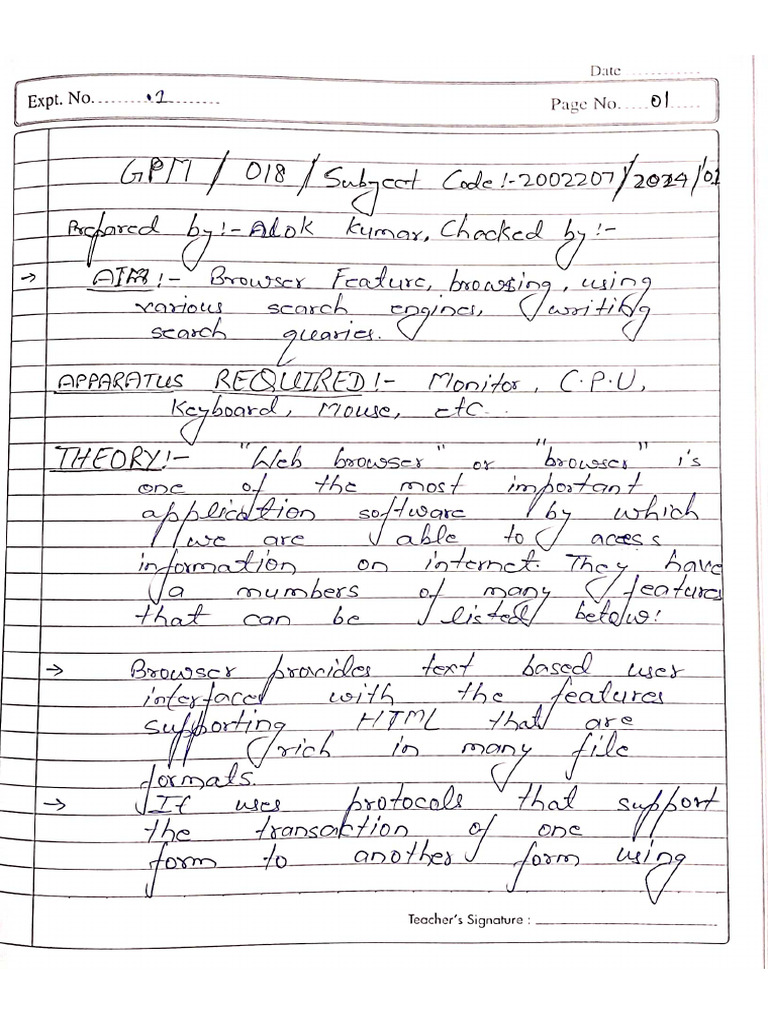 Date ............
Expt. No. ........ .1 ........
Page No. ..... 01 .....
GPM / 018 / Subject Code :- 2002207/2024/01
Prepared by :- Alok Kumar, Chacked by :-
→ AIM :- Browser Feature, browsing, using
various search engines, writing
search quaries.
APPARATUS REQUIRED :- Monitor, C.P.U,
Keyboard, Mouse, etc..
THEORY :- "Web browser" or "browser" is
one of the most important
application software by which
we are able to access
information on internet. They have
a numbers of many features
that can be listed below:
→ Browser provides text based user
interfaced with the features
supporting HTML that are
rich in many file
formats.
→ It uses protocals that support
the transaktion of one
form to another form using
Teacher's Signature :